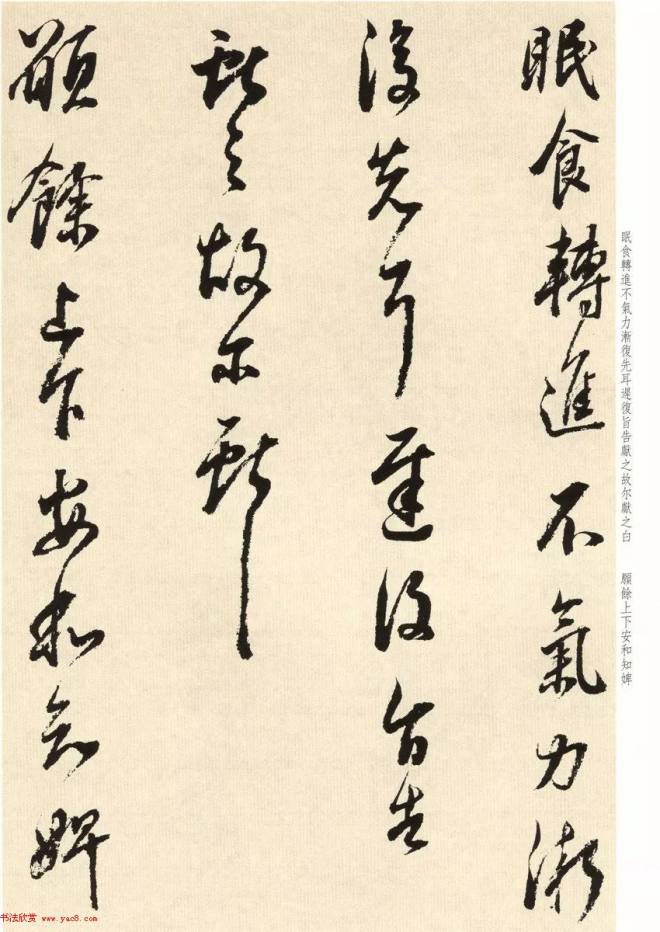 眠食轉進不氣力漸
復先耳遲復旨告
獻之故尔獻之白
願餘上下安和知婢
眠食轉進不氣力漸復先耳遲復旨告獻之故尔獻之白　願餘上下安和知婢
书法欣赏 www.yac8.com